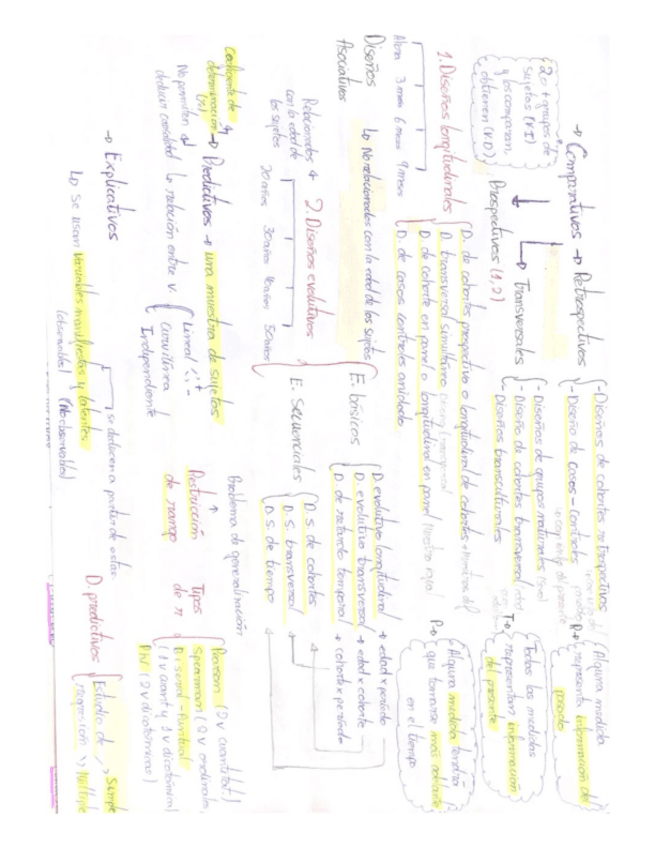 → Comparativos → Retrospectivos
- Diseños de cohortes retrospectivas
- Diseño de Casos - Controles
Alguna medida
representa información del
pasado
2 o + grupos de
sujetos (VI)
y los comparan,
obtienen (VD)
→ Transversales
- Diseños de grupos naturales
- Diseño de cohortes transversal
- Diseños transculturales
T→
Todas las medidas
representan información
del presente
Prospectivos (1,2)
P→
Alguna medida tendrá
que tomarse más adelante
en el tiempo
1. Diseños longitudinales
D. de cohortes prospectivo o longitudinal de cohortes
D. transversal simultáneo
D. de cohorte en panel o longitudinal en panel
D. de casos controles anidado
Ahora 3 meses 6 meses 9 meses
Diseños
Asociativos
↳ No relacionados con la edad de los sujetos
Relacionados ←
con la edad de
los sujetos
2. Diseños evolutivos
20 años 30 años 40 años 50 años
E. básicos
D. evolutivo longitudinal → edad x período
D. evolutivo transversal → edad x cohorte
D. de retardo temporal → cohorte x período
E. secuenciales
D. s. de cohortes
D. s. transversal
D. s. de tiempo
Coeficiente de
determinación
→ Predictivos → una muestra de sujetos
No permiten
deducir causalidad
la relación entre v.
Lineal + -
Curvilínea
Independiente
Problema de generalización
↑
Restricción
de rango
Tipos
de r
Pearson (2 v cuantitat)
Spearman (2 v ordinales)
Biserial-Puntual
(1 v cuant y 1 v dicotómica)
Phi (2 v dicotómicas)
→ Explicativos
↳ Se usan variables manifiestas y latentes
(observable) (No observable)
se deducen a partir de estas
D. predictivos
Estudio de
regresión
Simple
Múltiple